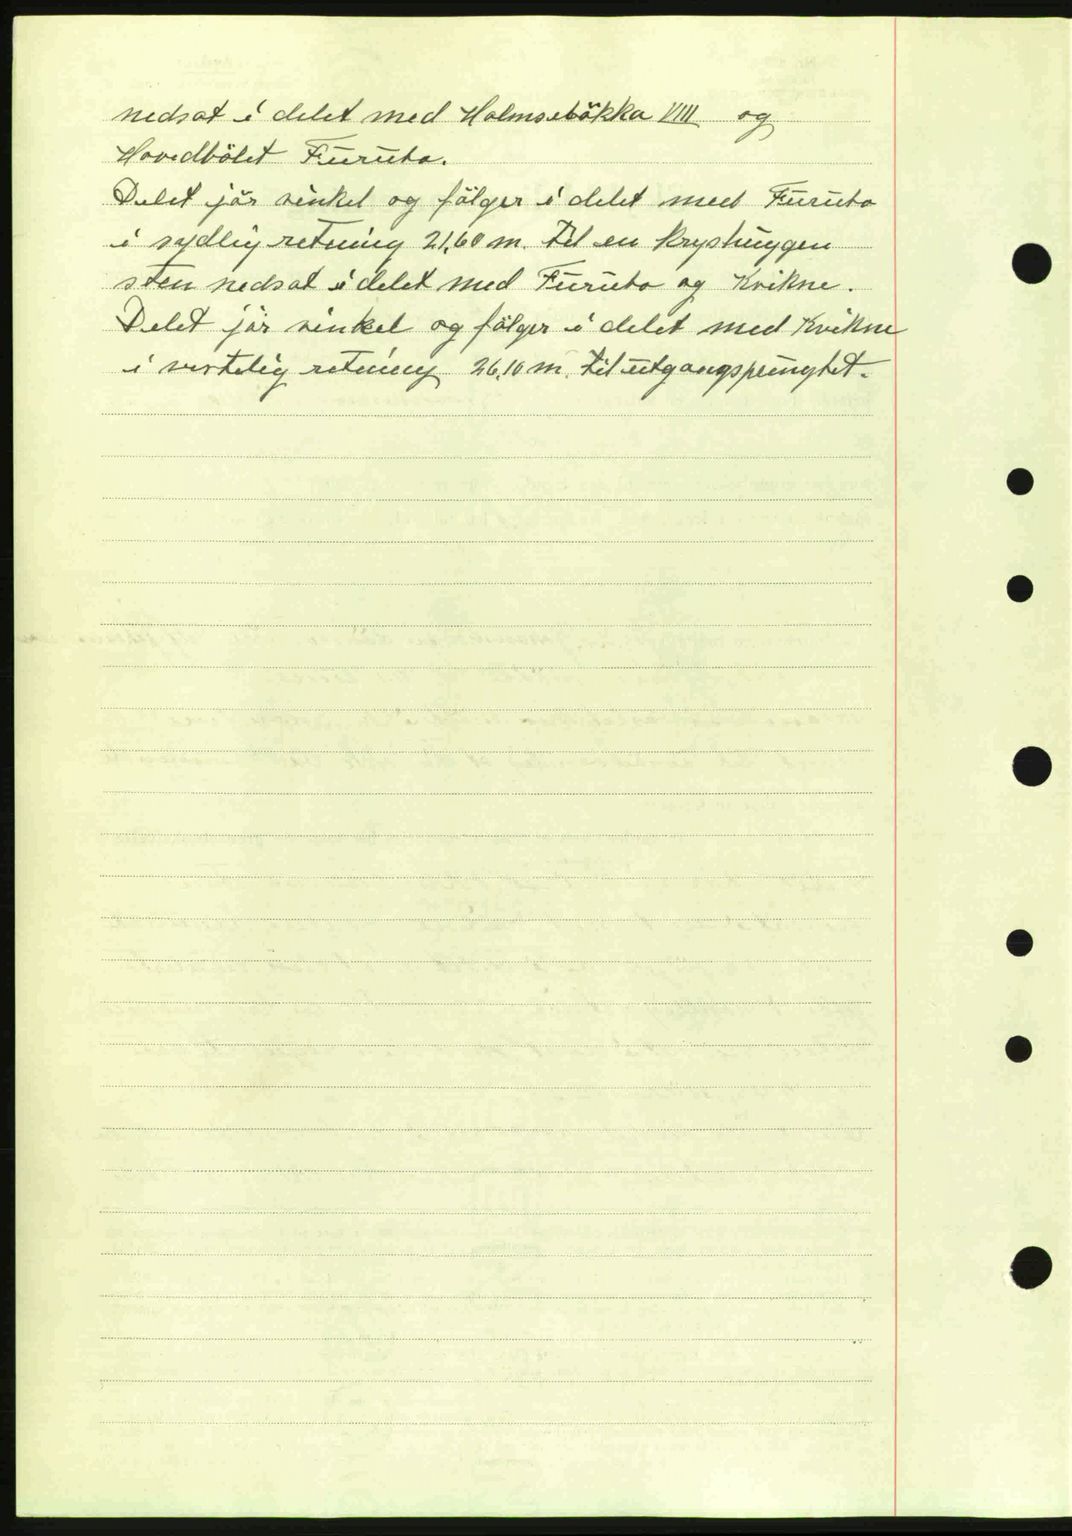 nedsat i delet med Holmsebåkka VIII og
Hovedbölet Furubo.
Delet jör vinkel og fölger i delet med Furubo
i sydlig retning 21,60 m. til en kryshuggen
sten nedsat i delet med Furubo og Kvikne.
Delet jör vinkel og fölger i delet med Kvikne
i vestelig retning 26,10 m. til utgangspungtet.